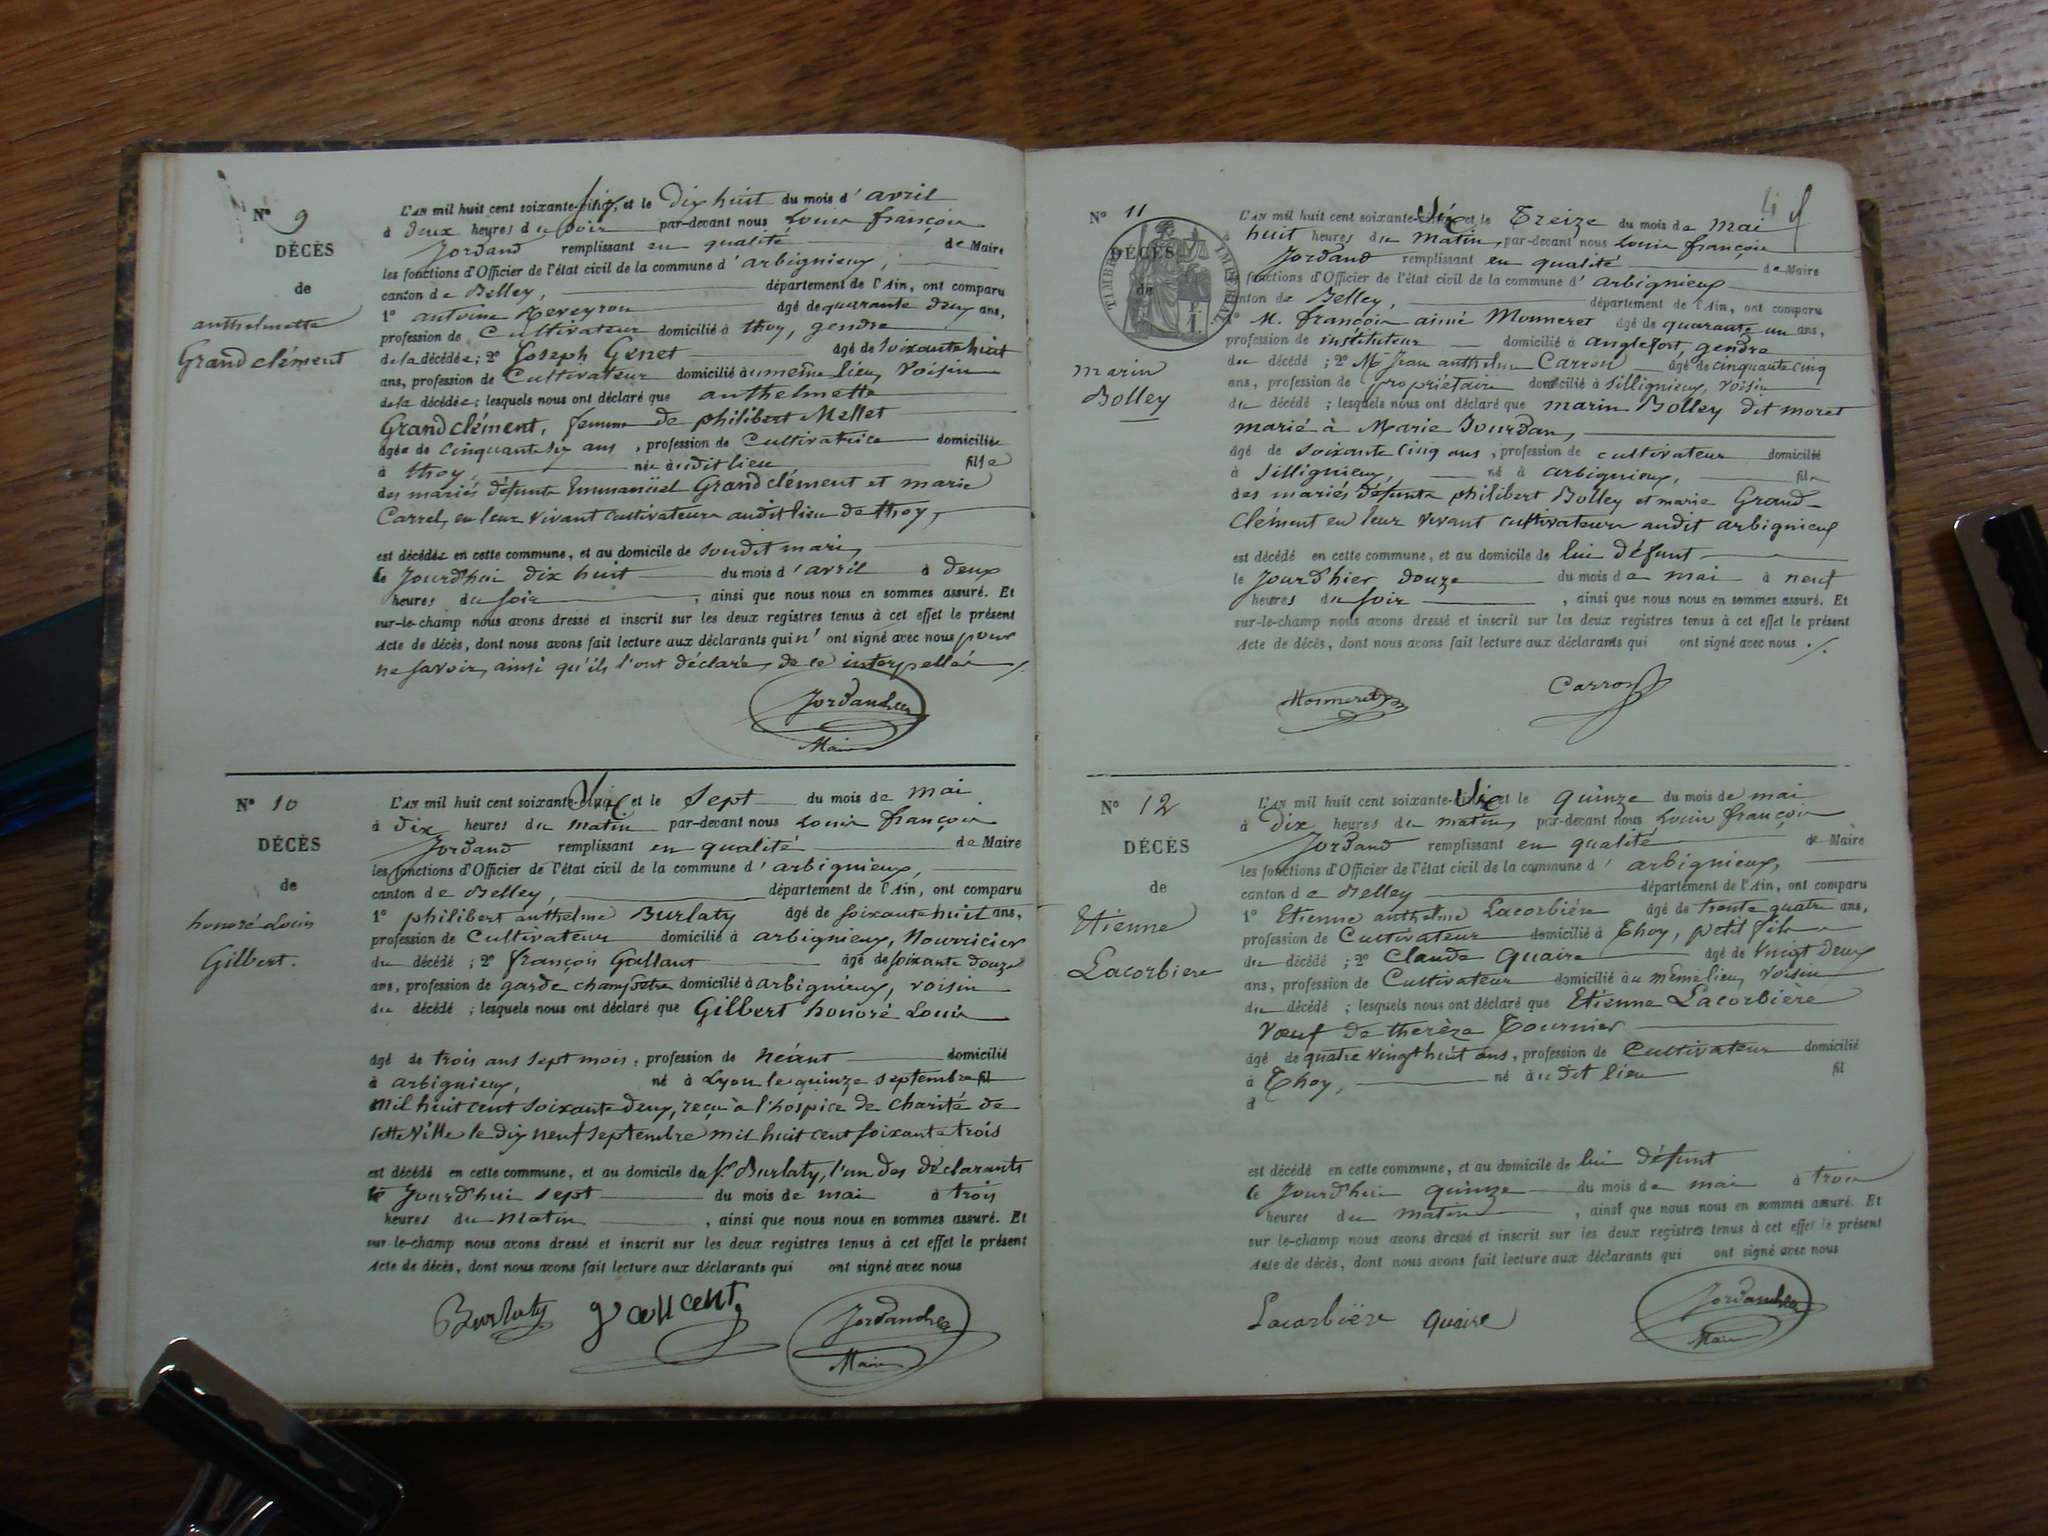 N° 9
DÉCÈS
de
anthelmette
Grandclément
L'AN mil huit cent soixante-six, et le Dix huit du mois d'avril
à deux heures du soir par-devant nous Louis françois
Jordand remplissant en qualité de Maire
les fonctions d'Officier de l'état civil de la commune d'arbignieux,
canton de Belley, département de l'Ain, ont comparu
1° antoine Teveyron âgé de quarante deux ans,
profession de Cultivateur domicilié à thoy, gendre
de la décédée ; 2° Joseph Genet âgé de soixante huit
ans, profession de Cultivateur domicilié au même lieu, voisin
de la décédée ; lesquels nous ont déclaré que anthelmette
Grandclément, femme de philibert Mellet
âgée de cinquante six ans, profession de Cultivatrice domiciliée
à thoy, née audit lieu fille
des mariés défunts Emmanüel Grandclément et marie
Carrel, en leur vivant cultivateurs audit lieu de thoy,
est décédée en cette commune, et au domicile de sondit mari,
le Jourd'hui dix huit du mois d'avril à deux
heures du soir, ainsi que nous nous en sommes assuré. Et
sur-le-champ nous avons dressé et inscrit sur les deux registres tenus à cet effet le présent
Acte de décès, dont nous avons fait lecture aux déclarants qui n'ont signé avec nous pour
ne savoir, ainsi qu'ils l'ont déclaré, de ce interpellés ./.
Jordand
Maire
N° 10
DÉCÈS
de
honoré Louis
Gilbert.
L'AN mil huit cent soixante-Six et le sept du mois de mai
à dix heures du matin par-devant nous Louis françois
Jordand remplissant en qualité de Maire
les fonctions d'Officier de l'état civil de la commune d'arbignieux,
canton de Belley, département de l'Ain, ont comparu
1° philibert anthelme Burlaty âgé de soixante huit ans,
profession de Cultivateur domicilié à arbignieux, Nourricier
du décédé ; 2° françois Gallant âgé de soixante douze
ans, profession de garde champêtre domicilié à arbignieux, voisin
du décédé ; lesquels nous ont déclaré que Gilbert honoré Louis
âgé de trois ans sept mois, profession de Néant domicilié
à arbignieux, né à Lyon le quinze septembre fil
mil huit cent soixante deux, reçu à l'hospice de charité de
cette ville le dix neuf septembre mil huit cent soixante trois
est décédé en cette commune, et au domicile du Sr. Burlaty, l'un des déclarants
le Jourd'hui sept du mois de mai à trois
heures du matin, ainsi que nous nous en sommes assuré. Et
sur-le-champ nous avons dressé et inscrit sur les deux registres tenus à cet effet le présent
Acte de décès, dont nous avons fait lecture aux déclarants qui ont signé avec nous
Burlaty Jordand
Maire
4
N° 11
DÉCÈS
de
TIMBRE IMPERIAL
marin
Bolley
L'AN mil huit cent soixante-Six et le Treize du mois de mai
huit heures du matin, par-devant nous Louis françois
Jordand remplissant en qualité de Maire
fonctions d'Officier de l'état civil de la commune d'arbignieux
canton de Belley, département de l'Ain, ont comparu
1° M. françois aimé Monneret âgé de quarante un ans,
profession de instituteur domicilié à anglefort, gendre
du décédé ; 2° M. Jean anthelme Carron âgé de cinquante cinq
ans, profession de propriétaire domicilié à sillignieux, voisin
du décédé ; lesquels nous ont déclaré que marin Bolley dit moret
marié à Marie Jourdan,
âgé de soixante cinq ans, profession de cultivateur domicilié
à sillignieux, né à arbignieux, fils
des mariés défunts philibert Bolley et marie Grand-
clément en leur vivant cultivateurs audit arbignieux
est décédé en cette commune, et au domicile de lui défunt
le Jourd'hier douze du mois de mai à neuf
heures du soir, ainsi que nous nous en sommes assuré. Et
sur-le-champ nous avons dressé et inscrit sur les deux registres tenus à cet effet le présent
Acte de décès, dont nous avons fait lecture aux déclarants qui ont signé avec nous ./.
Monneret Carron
N° 12
DÉCÈS
de
Etienne
Lacorbiere
L'AN mil huit cent soixante-Six et le quinze du mois de mai
à Dix heures du matin, par-devant nous Louis françois
Jordand remplissant en qualité de Maire
les fonctions d'Officier de l'état civil de la commune d'arbignieux,
canton de Belley département de l'Ain, ont comparu
1° Etienne anthelme Lacorbiére âgé de trente quatre ans,
profession de Cultivateur domicilié à Thoy, petit fils
du décédé ; 2° Claude Quaire âgé de vingt deux
ans, profession de Cultivateur domicilié au même lieu, voisin
du décédé ; lesquels nous ont déclaré que Etienne Lacorbière
Vœuf de therèze Tournier
âgé de quatre vingt huit ans, profession de Cultivateur domicilié
à Thoy, né audit lieu fil
d
est décédé en cette commune, et au domicile de lui défunt
le Jourd'hui quinze du mois de mai à trois
heures du matin, ainsi que nous nous en sommes assuré. Et
sur-le-champ nous avons dressé et inscrit sur les deux registres tenus à cet effet le présent
Acte de décès, dont nous avons fait lecture aux déclarants qui ont signé avec nous
Lacorbière Quaire Jordand
Maire